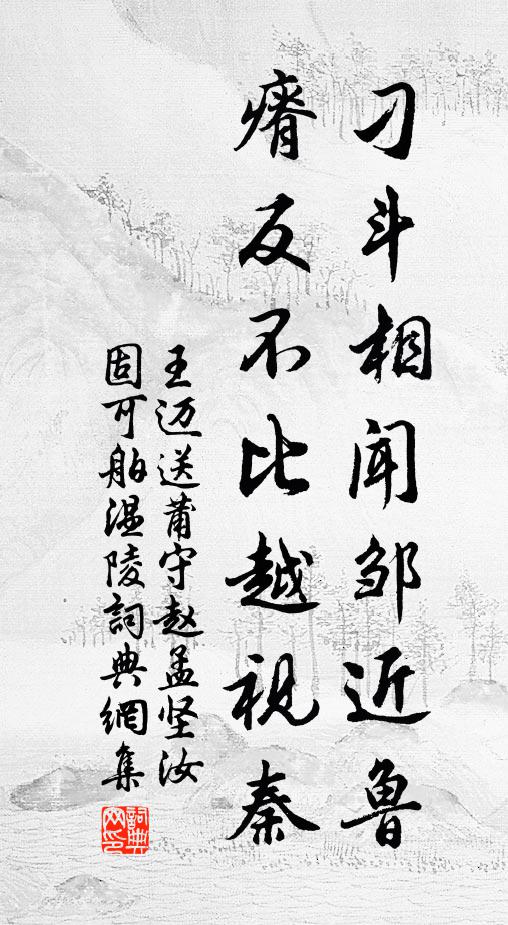 刁斗相闻邹近鲁
瘠反不比越视秦
王迈送莆守赵孟坚汝
固可舶温陵詞典網集
詞典网印